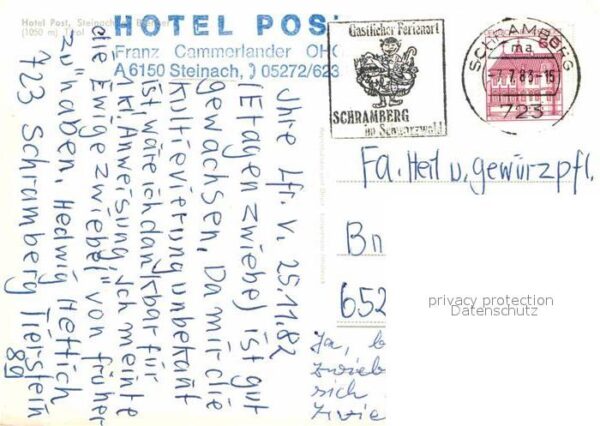 Hotel Post, Steinach
(1050 m) Tirol
HOTEL POS
Franz Cammerlander OHG
A 6150 Steinach, 05272/623
Gastlicher Ferienort
SCHRAMBERG
im Schwarzwald
SCHRAMBERG
ma
-7.7.83-15
723
60
Ihre Lfr. v. 25.11.82
(Etagenzwiebe) ist gut
gewachsen. Da mir die
Kultievierung unbekant
ist wäre ich dankbar für
Anweisung, ich meinte
die "Ewige zwiebel" von früher
zu "haben. Hedwig Hettich
723 Schramberg Tierstein
89
Fa. Heil u. gewürzpfl.
Bn
652
privacy protection
Datenschutz
Ja,
zwieb
sich
zwie